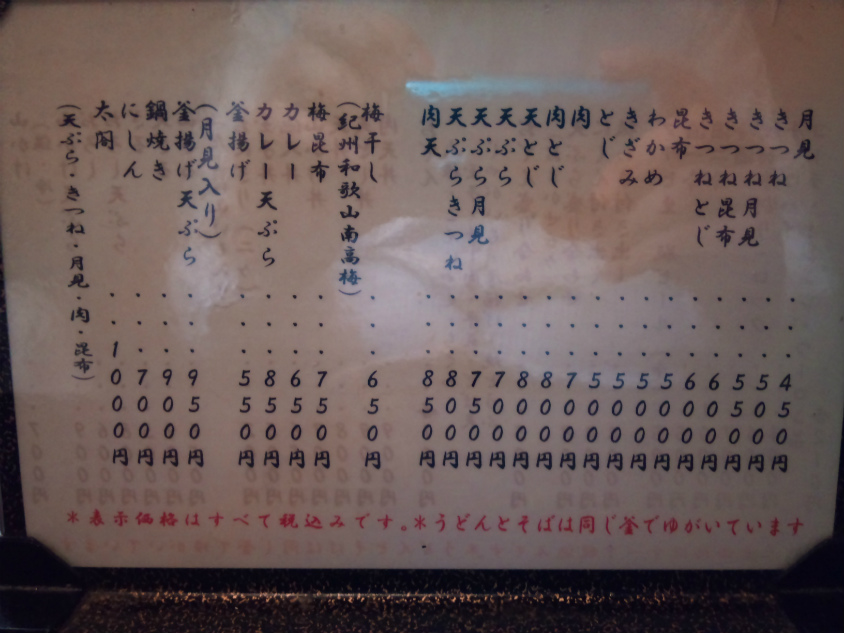 月見・・・450円
きつね・・・500円
きつね月見・・・550円
きつね昆布・・・600円
きつねとじ・・・600円
昆布・・・500円
わかめ・・・500円
きざみ・・・500円
とじ・・・500円
肉・・・700円
肉とじ・・・800円
天とじ・・・800円
天ぷら・・・700円
天ぷら月見・・・750円
天ぷらきつね・・・800円
肉天・・・850円
梅干し・・・650円
(紀州和歌山南高梅)
梅昆布・・・750円
カレー・・・650円
カレー天ぷら・・・850円
釜揚げ・・・550円
(月見入り)
釜揚げ天ぷら・・・950円
鍋焼き・・・900円
にしん・・・700円
太閤・・・1000円
(天ぷら・きつね・月見・肉・昆布)
*表示価格はすべて税込みです。*うどんとそばは同じ釜でゆがいています